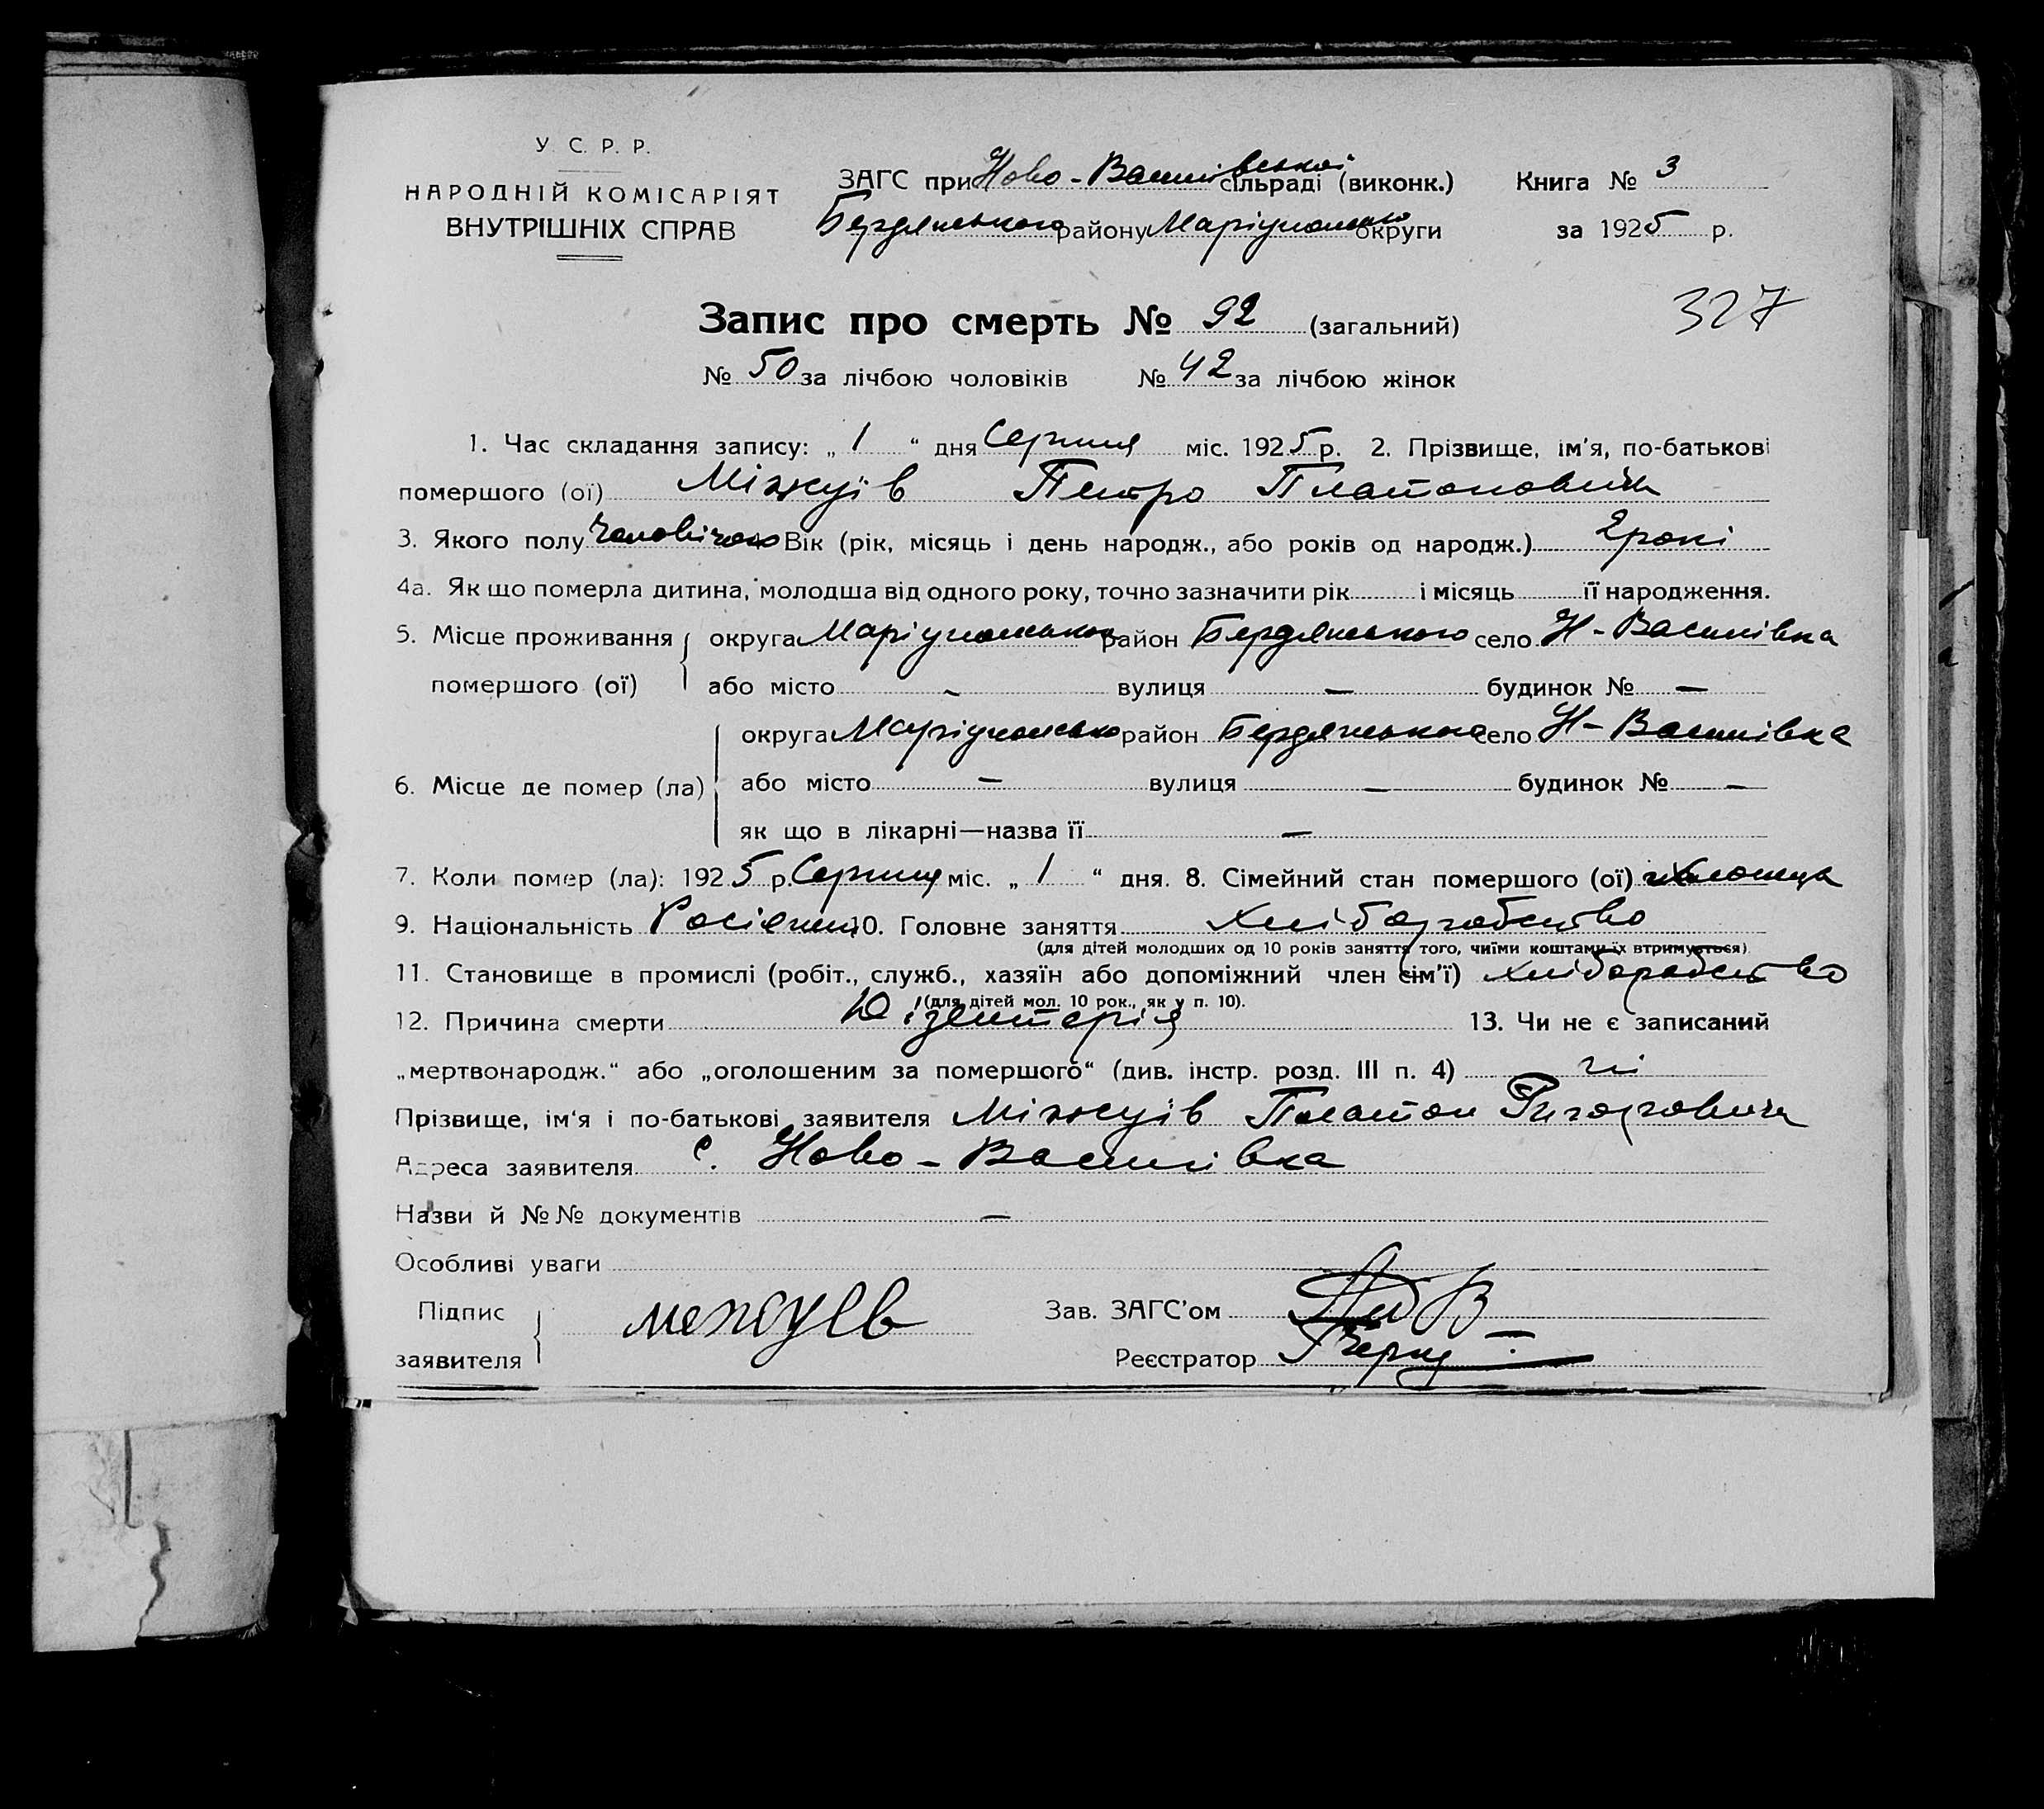 У. С. Р. Р.
НАРОДНІЙ КОМІСАРІЯТ
ВНУТРІШНІХ СПРАВ
ЗАГС при Ново-Василівської сільраді (виконк.)
Бердянського району Маріупольсько округи
Книга № 3
за 1925 р.
327
Запис про смерть № 92 (загальний)
№ 50 за лічбою чоловіків № 42 за лічбою жінок
1. Час складання запису: „ 1 “ дня Серпня міс. 1925 р. 2. Прізвище, ім'я, по-батькові
помершого (ої) Міжуїв Петро Платонович
3. Якого полу Чоловічого Вік (рік, місяць і день народж., або років од народж.) 2 роки
4а. Як що померла дитина, молодша від одного року, точно зазначити рік і місяць її народження.
5. Місце проживання округа Маріупольсько район Бердянського село Н-Василівка
помершого (ої) або місто - вулиця — будинок № —
округа Маріупольсько район Бердянського село Н-Василівка
6. Місце де помер (ла) або місто — вулиця — будинок № —
як що в лікарні—назва її —
7. Коли помер (ла): 1925 р. Серпня міс. „ 1 “ дня. 8. Сімейний стан помершого (ої)
9. Національність Росіянин 10. Головне заняття хліборобство
(для дітей молодших од 10 років заняття того, чиїми коштами їх втримується)
11. Становище в промислі (робіт., служб., хазяїн або допоміжний член сім'ї) хліборобство
(для дітей мол. 10 рок., як у п. 10).
12. Причина смерти Дізентерія 13. Чи не є записаний
„мертвонародж.“ або „оголошеним за помершого“ (див. інстр. розд. III п. 4) ні
Прізвище, ім'я і по-батькові заявителя Міжуїв Платон Григорович
Адреса заявителя с. Ново-Василівка
Назви й №№ документів —
Особливі уваги
Підпис
заявителя межуев
Зав. ЗАГС'ом
Реєстратор